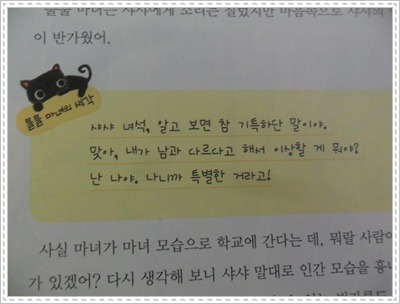 이 반가웠어.
툴툴 마녀의 생각
샤샤 녀석, 알고 보면 참 기특하단 말이야.
맞아, 내가 남과 다르다고 해서 이상할 게 뭐야?
난 나야. 나니까 특별한 거라고!
사실 마녀가 마녀 모습으로 학교에 간다는 데, 뭐랄 사람이
가 있겠어? 다시 생각해 보니 샤샤 말대로 인간 모습을 흉내